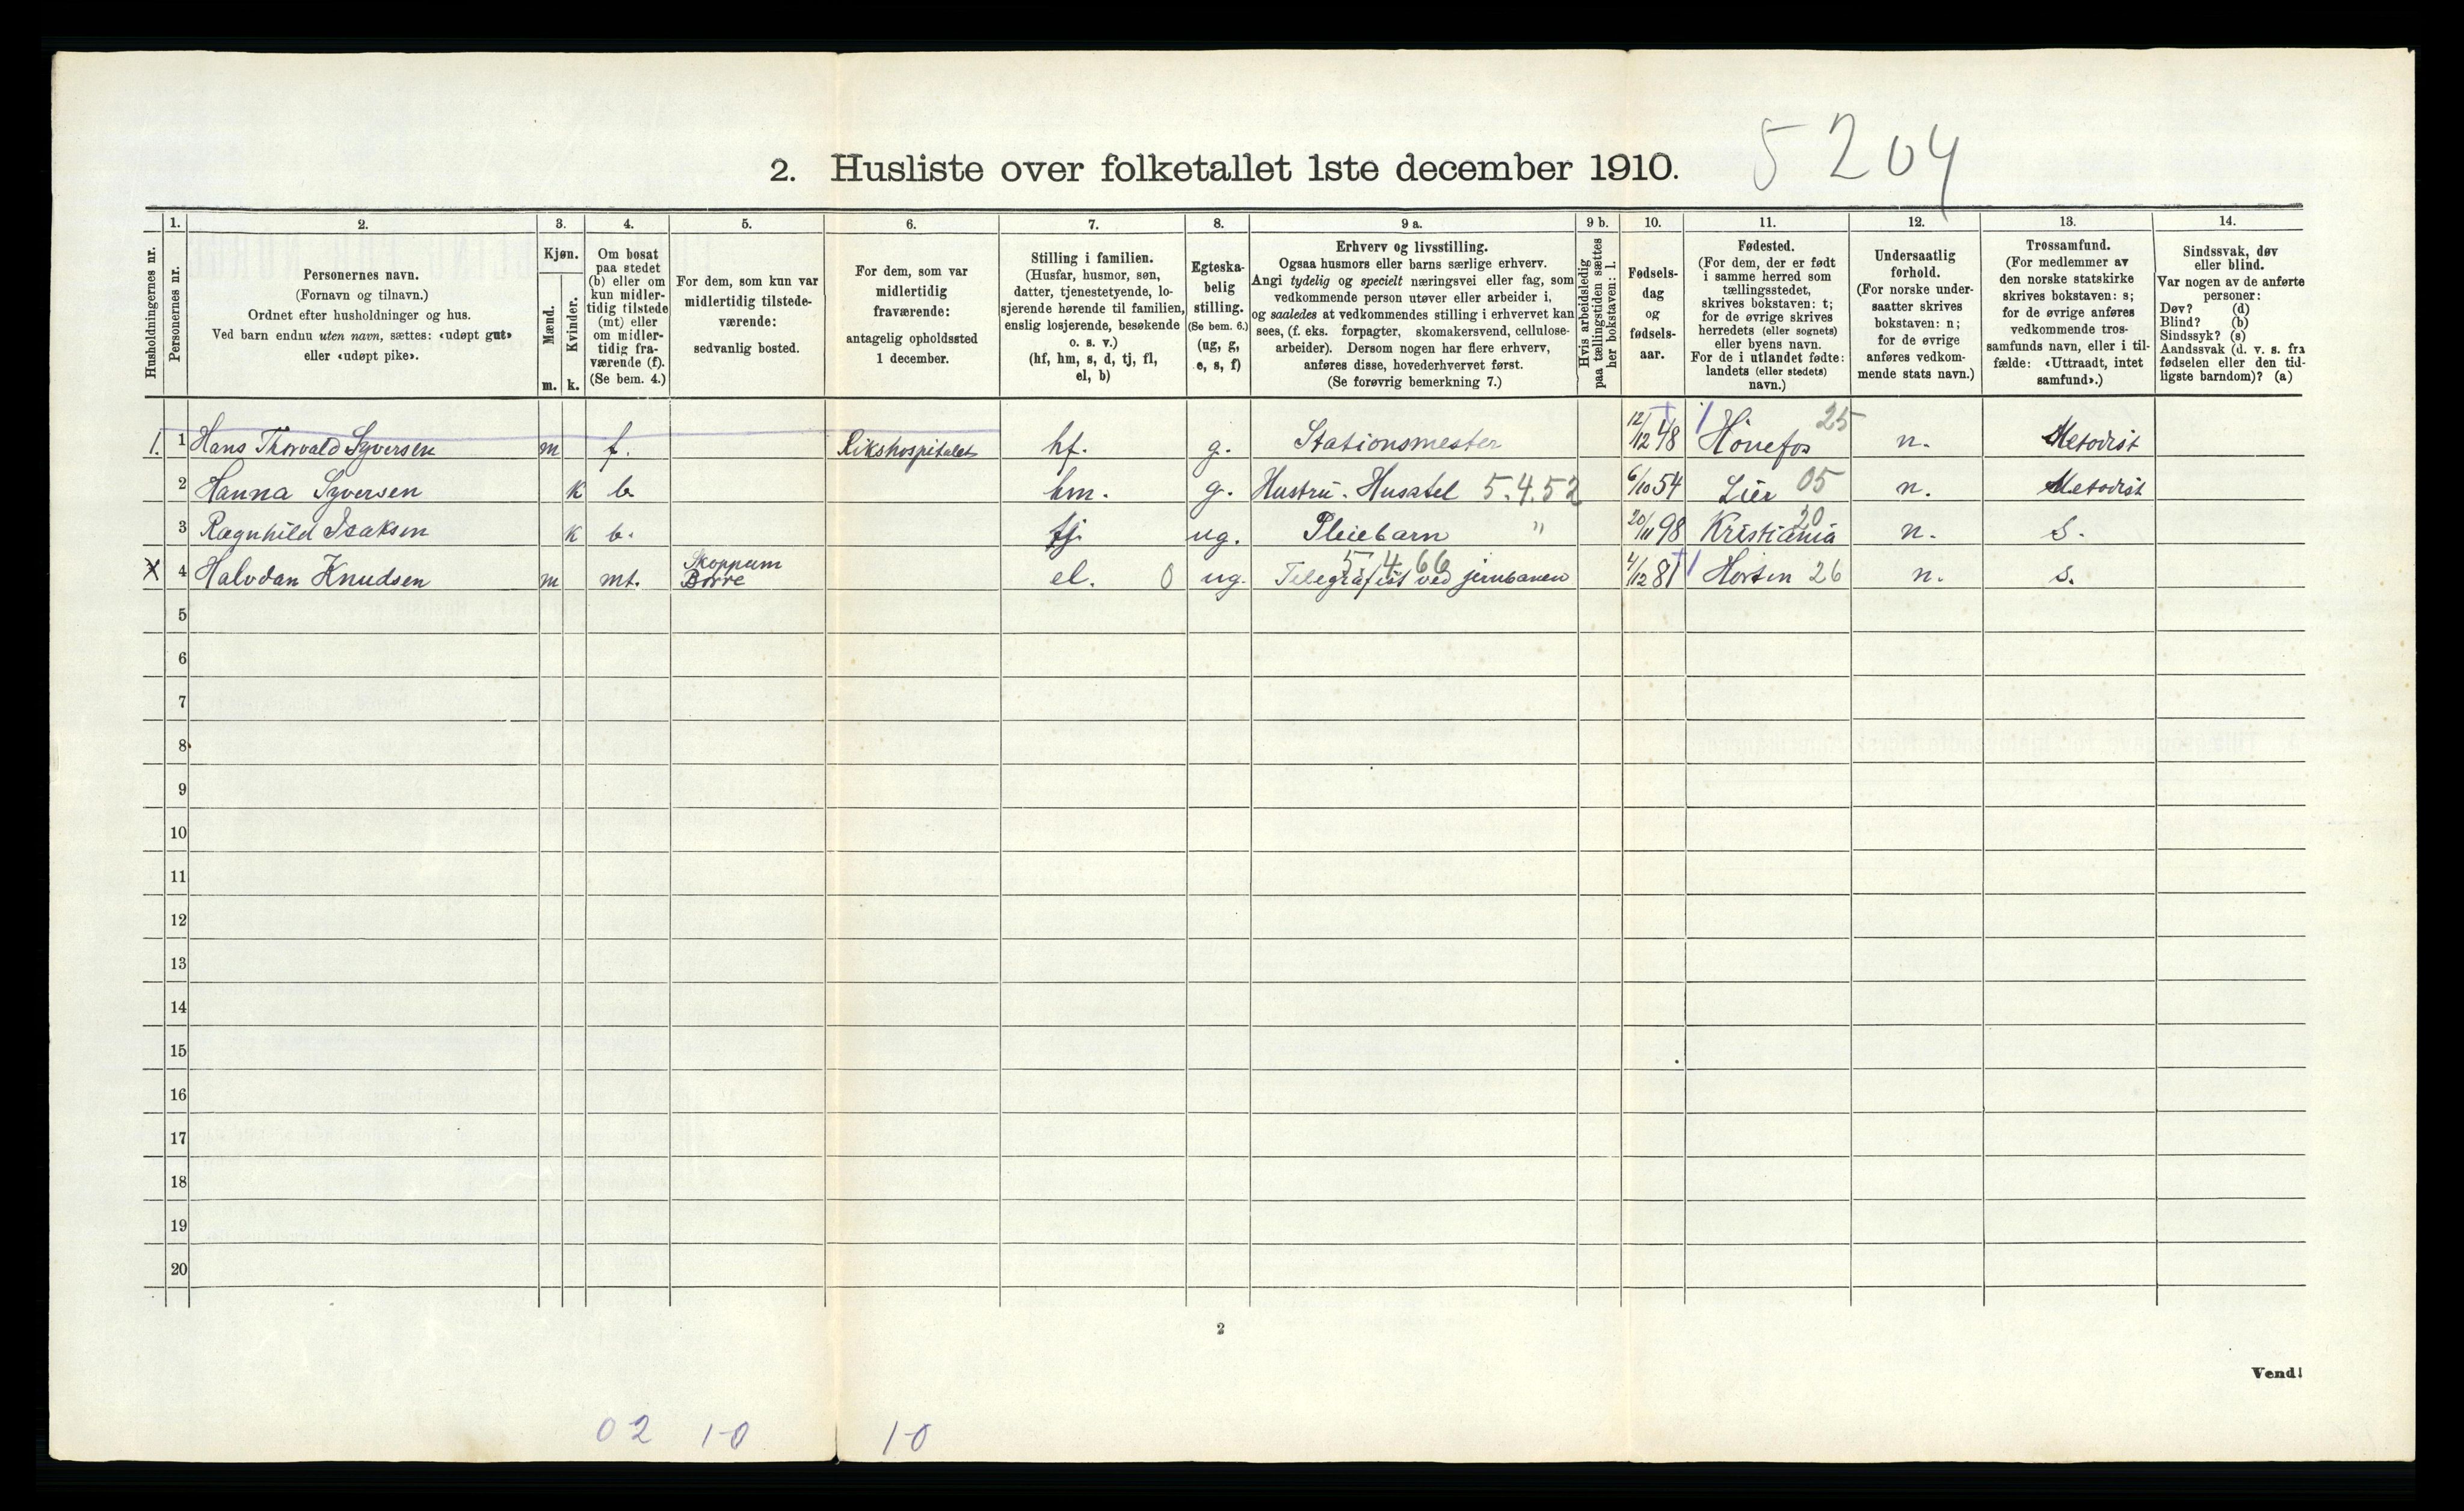 5204
2. Husliste over folketallet 1ste december 1910.
1. 2. 3. 4. 5. 6. 7. 8. 9 a. 9 b. 10. 11. 12. 13. 14.
Husholdningernes nr.
Personernes nr.
Personernes navn.
(Fornavn og tilnavn.)
Ordnet efter husholdninger og hus.
Ved barn endnu uten navn, sættes: «udøpt gut»
eller «udøpt pike».
Kjøn.
Mænd.
Kvinder.
m. k.
Om bosat
paa stedet
(b) eller om
kun midler-
tidig tilstede
(mt) eller
om midler-
tidig fra-
værende (f).
(Se bem. 4.)
For dem, som kun var
midlertidig tilstede-
værende:
sedvanlig bosted.
For dem, som var
midlertidig
fraværende:
antagelig opholdssted
1 december.
Stilling i familien.
(Husfar, husmor, søn,
datter, tjenestetyende, lo-
sjerende hørende til familien,
enslig losjerende, besøkende
o. s. v.)
(hf, hm, s, d, tj, fl,
el, b)
Egteska-
belig
stilling.
(Se bem. 6.)
(ug, g,
e, s, f)
Erhverv og livsstilling.
Ogsaa husmors eller barns særlige erhverv.
Angi tydelig og specielt næringsvei eller fag, som
vedkommende person utøver eller arbeider i,
og saaledes at vedkommendes stilling i erhvervet kan
sees, (f. eks. forpagter, skomakersvend, cellulose-
arbeider). Dersom nogen har flere erhverv,
anføres disse, hovederhvervet først.
(Se forøvrig bemerkning 7.)
Hvis arbeidsledig
paa tællingstiden sættes
her bokstaven: l.
Fødsels-
dag
og
fødsels-
aar.
Fødested.
(For dem, der er født
i samme herred som
tællingsstedet,
skrives bokstaven: t;
for de øvrige skrives
herredets (eller sognets)
eller byens navn.
For de i utlandet fødte:
landets (eller stedets)
navn.)
Undersaatlig
forhold.
(For norske under-
saatter skrives
bokstaven: n;
for de øvrige
anføres vedkom-
mende stats navn.)
Trossamfund.
(For medlemmer av
den norske statskirke
skrives bokstaven: s;
for de øvrige anføres
vedkommende tros-
samfunds navn, eller i til-
fælde: «Uttraadt, intet
samfund».)
Sindssvak, døv
eller blind.
Var nogen av de anførte
personer:
Døv? (d)
Blind? (b)
Sindssyk? (s)
Aandssvak (d. v. s. fra
fødselen eller den tid-
ligste barndom)? (a)
1. 1 Hans Thorvald Syversen m f. Rikshospitalet hf. g. Stationsmester 12/12 48 Hönefos 25 n. Metodist
2 Hanna Syversen k b. hm. g. Hustru. Husstel 5.4.52 6/10 54 Lier 05 n. Metodist
3 Ragnhild Isaksen k b. tj. ug. Pleiebarn " 20/11 98 Kristiania 20 n. s.
X 4 Halvdan Knudsen m mt. Skoppum Borre el. 0 ug. Telegrafist ved jernbanen 5.4.66 4/12 81 Horten 26 n. s.
5
6
7
8
9
10
11
12
13
14
15
16
17
18
19
20
2
Vend!
02 10 10